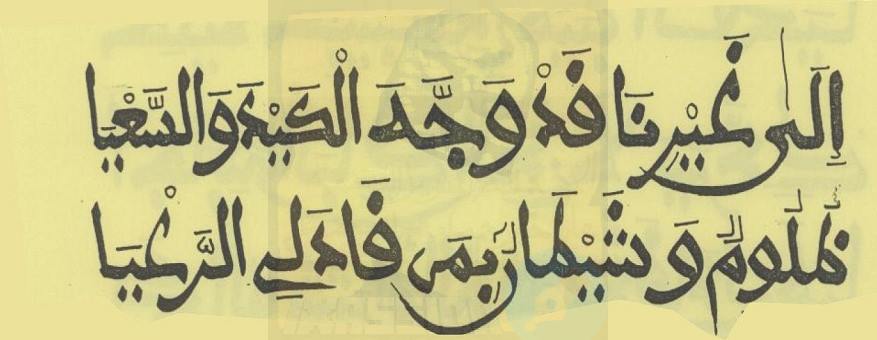 إِلَى غَيْرِنَا قَدْ وَجَّهَ الْكَيْدَ وَالسَّعْيَا
ظَلُومٌ وَشَيْطَانٌ بِمَنْ قَادَ لِي الرَّعْيَا